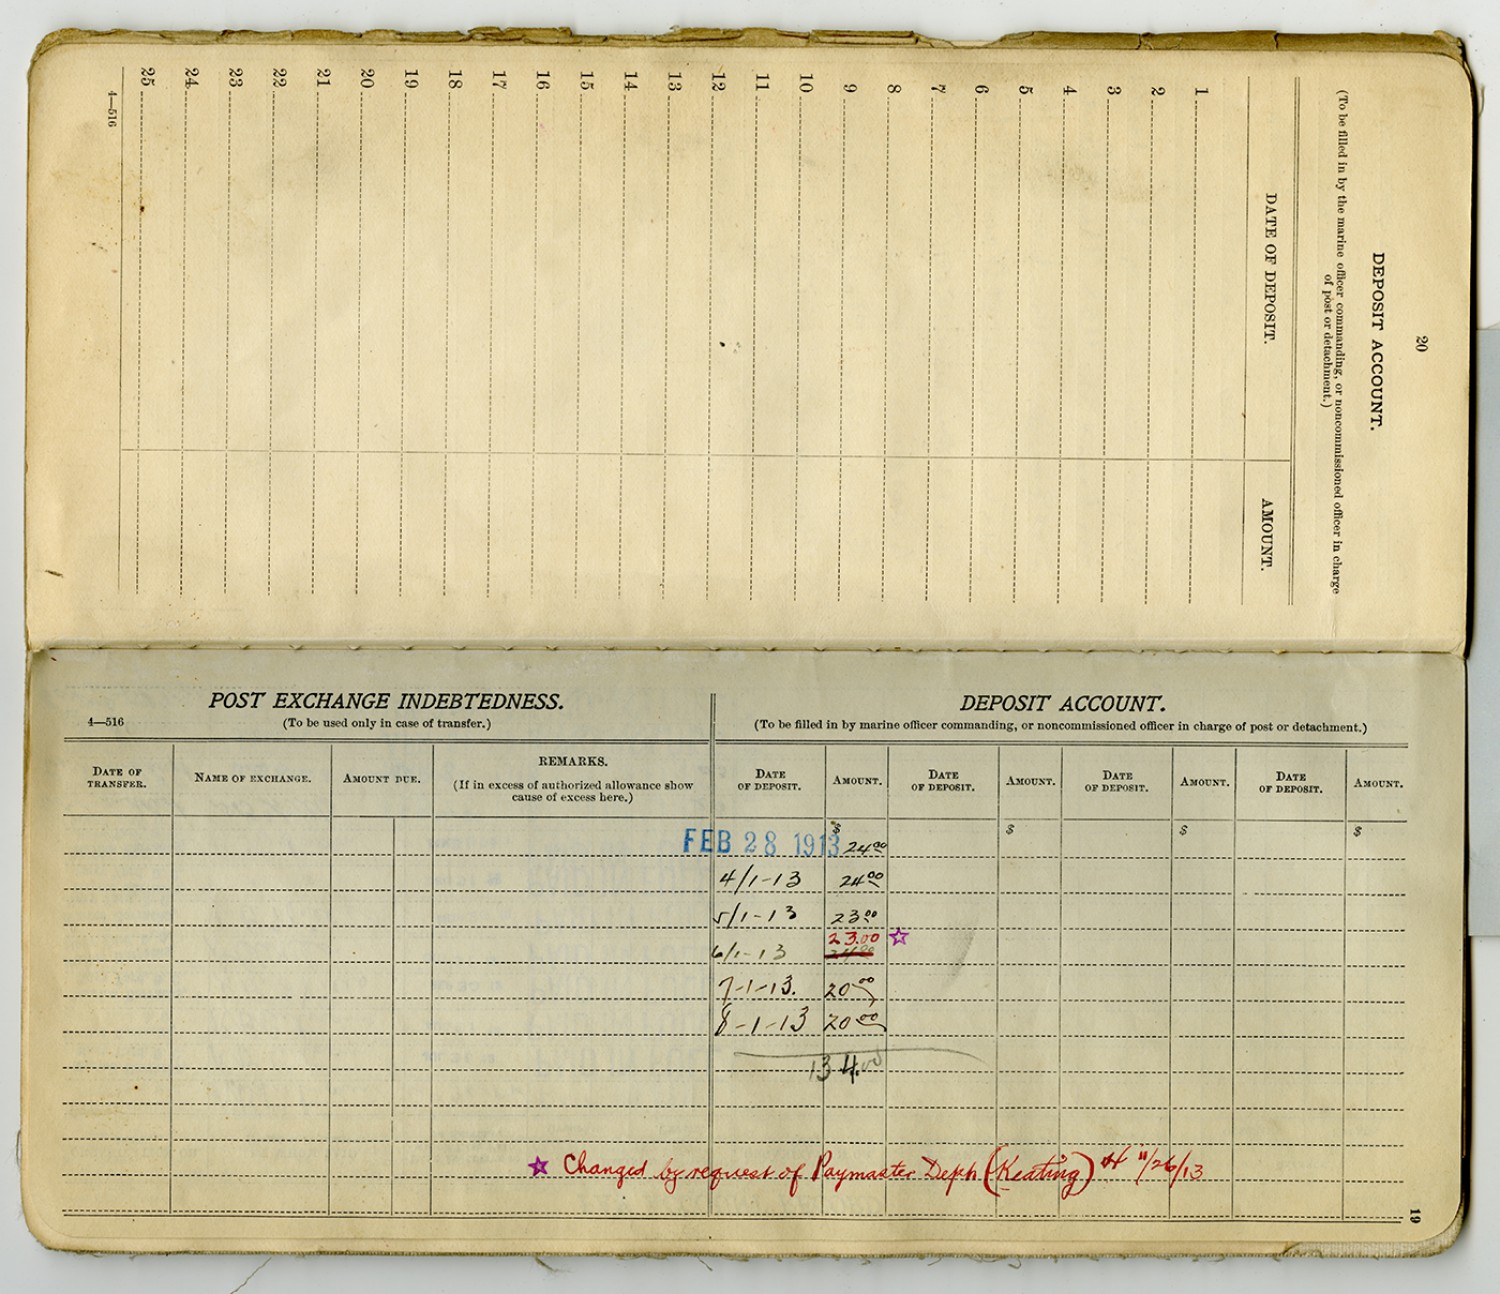 20
DEPOSIT ACCOUNT.
(To be filled in by the marine officer commanding, or noncommissioned officer in charge
of post or detachment.)
DATE OF DEPOSIT. AMOUNT.
1
2
3
4
5
6
7
8
9
10
11
12
13
14
15
16
17
18
19
20
21
22
23
24
25
4—516
POST EXCHANGE INDEBTEDNESS.
4—516
(To be used only in case of transfer.)
DATE OF TRANSFER. NAME OF EXCHANGE. AMOUNT DUE. REMARKS.
(If in excess of authorized allowance show
cause of excess here.)
DEPOSIT ACCOUNT.
(To be filled in by marine officer commanding, or noncommissioned officer in charge of post or detachment.)
DATE OF DEPOSIT. AMOUNT. DATE OF DEPOSIT. AMOUNT. DATE OF DEPOSIT. AMOUNT. DATE OF DEPOSIT. AMOUNT.
$ $ $ $
FEB 28 1913 24 00
4/1-13 24 00
5/1-13 23 00
23.00 ☆
6/1-13
7-1-13. 20 00
8-1-13 20 00
134.00
☆ Changed by request of Paymaster (Keating) 11/26/13
19